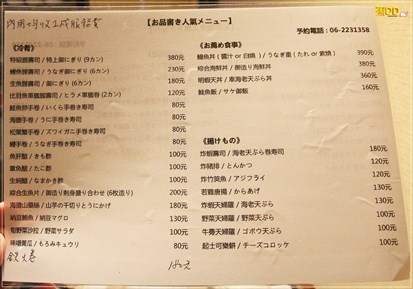 內用
【お品書き人氣メニュー】
予約電話：06-2231358
《冷前》
特級握壽司 / 特上握にぎり (9カン) 380元
鰻魚握壽司 / うなぎ握にぎり (6カン) 230元
生魚握壽司 / 御にぎり (6カン) 180元
比目魚軍艦握壽司 / ヒラメ軍艦巻 (2カン) 100元
鮭魚卵手卷 / いくら手巻き寿司 80元
海膽手卷 / うに手巻き寿司 80元
松葉蟹手卷 / ズワイガニ手巻き寿司 80元
鰻手卷 / うなぎ手巻き寿司 80元
魚肝酢 / きも酢 100元
章魚酢 / たこ酢 100元
生蚵醋 / なまかき酢 100元
綜合生魚片 / 御造り刺身盛り合わせ (6枚造り) 200元
海膽山藥絲 / 山芋の千切りとうにかけ 180元
納豆鮪魚 / 納豆マグロ 130元
旬野菜沙拉 / 野菜サラダ 100元
味噌黃瓜 / もろみキュウリ 80元
炙火卷 180元
《お薦め食事》
鰻魚丼 (醬汁 or 白燒) / うなぎ重 (たれ or 素燒) 390元
綜合海鮮丼 / 御造り海鮮丼 380元
明蝦天丼 / 車海老天ぷら丼 360元
鮭魚飯 / サケ御飯 160元
《揚げもの》
炸蝦壽司 / 海老天ぷら巻寿司 180元
炸豬排 / とんかつ 120元
炸竹筴魚 / アジフライ 120元
若雞唐揚 / からあげ 130元
炸蝦天婦羅 / 海老天ぷら 130元
野菜天婦羅 / 野菜天ぷら 100元
牛蒡天婦羅 / ゴボウ天ぷら 100元
起士可樂餅 / チーズコロッケ 100元